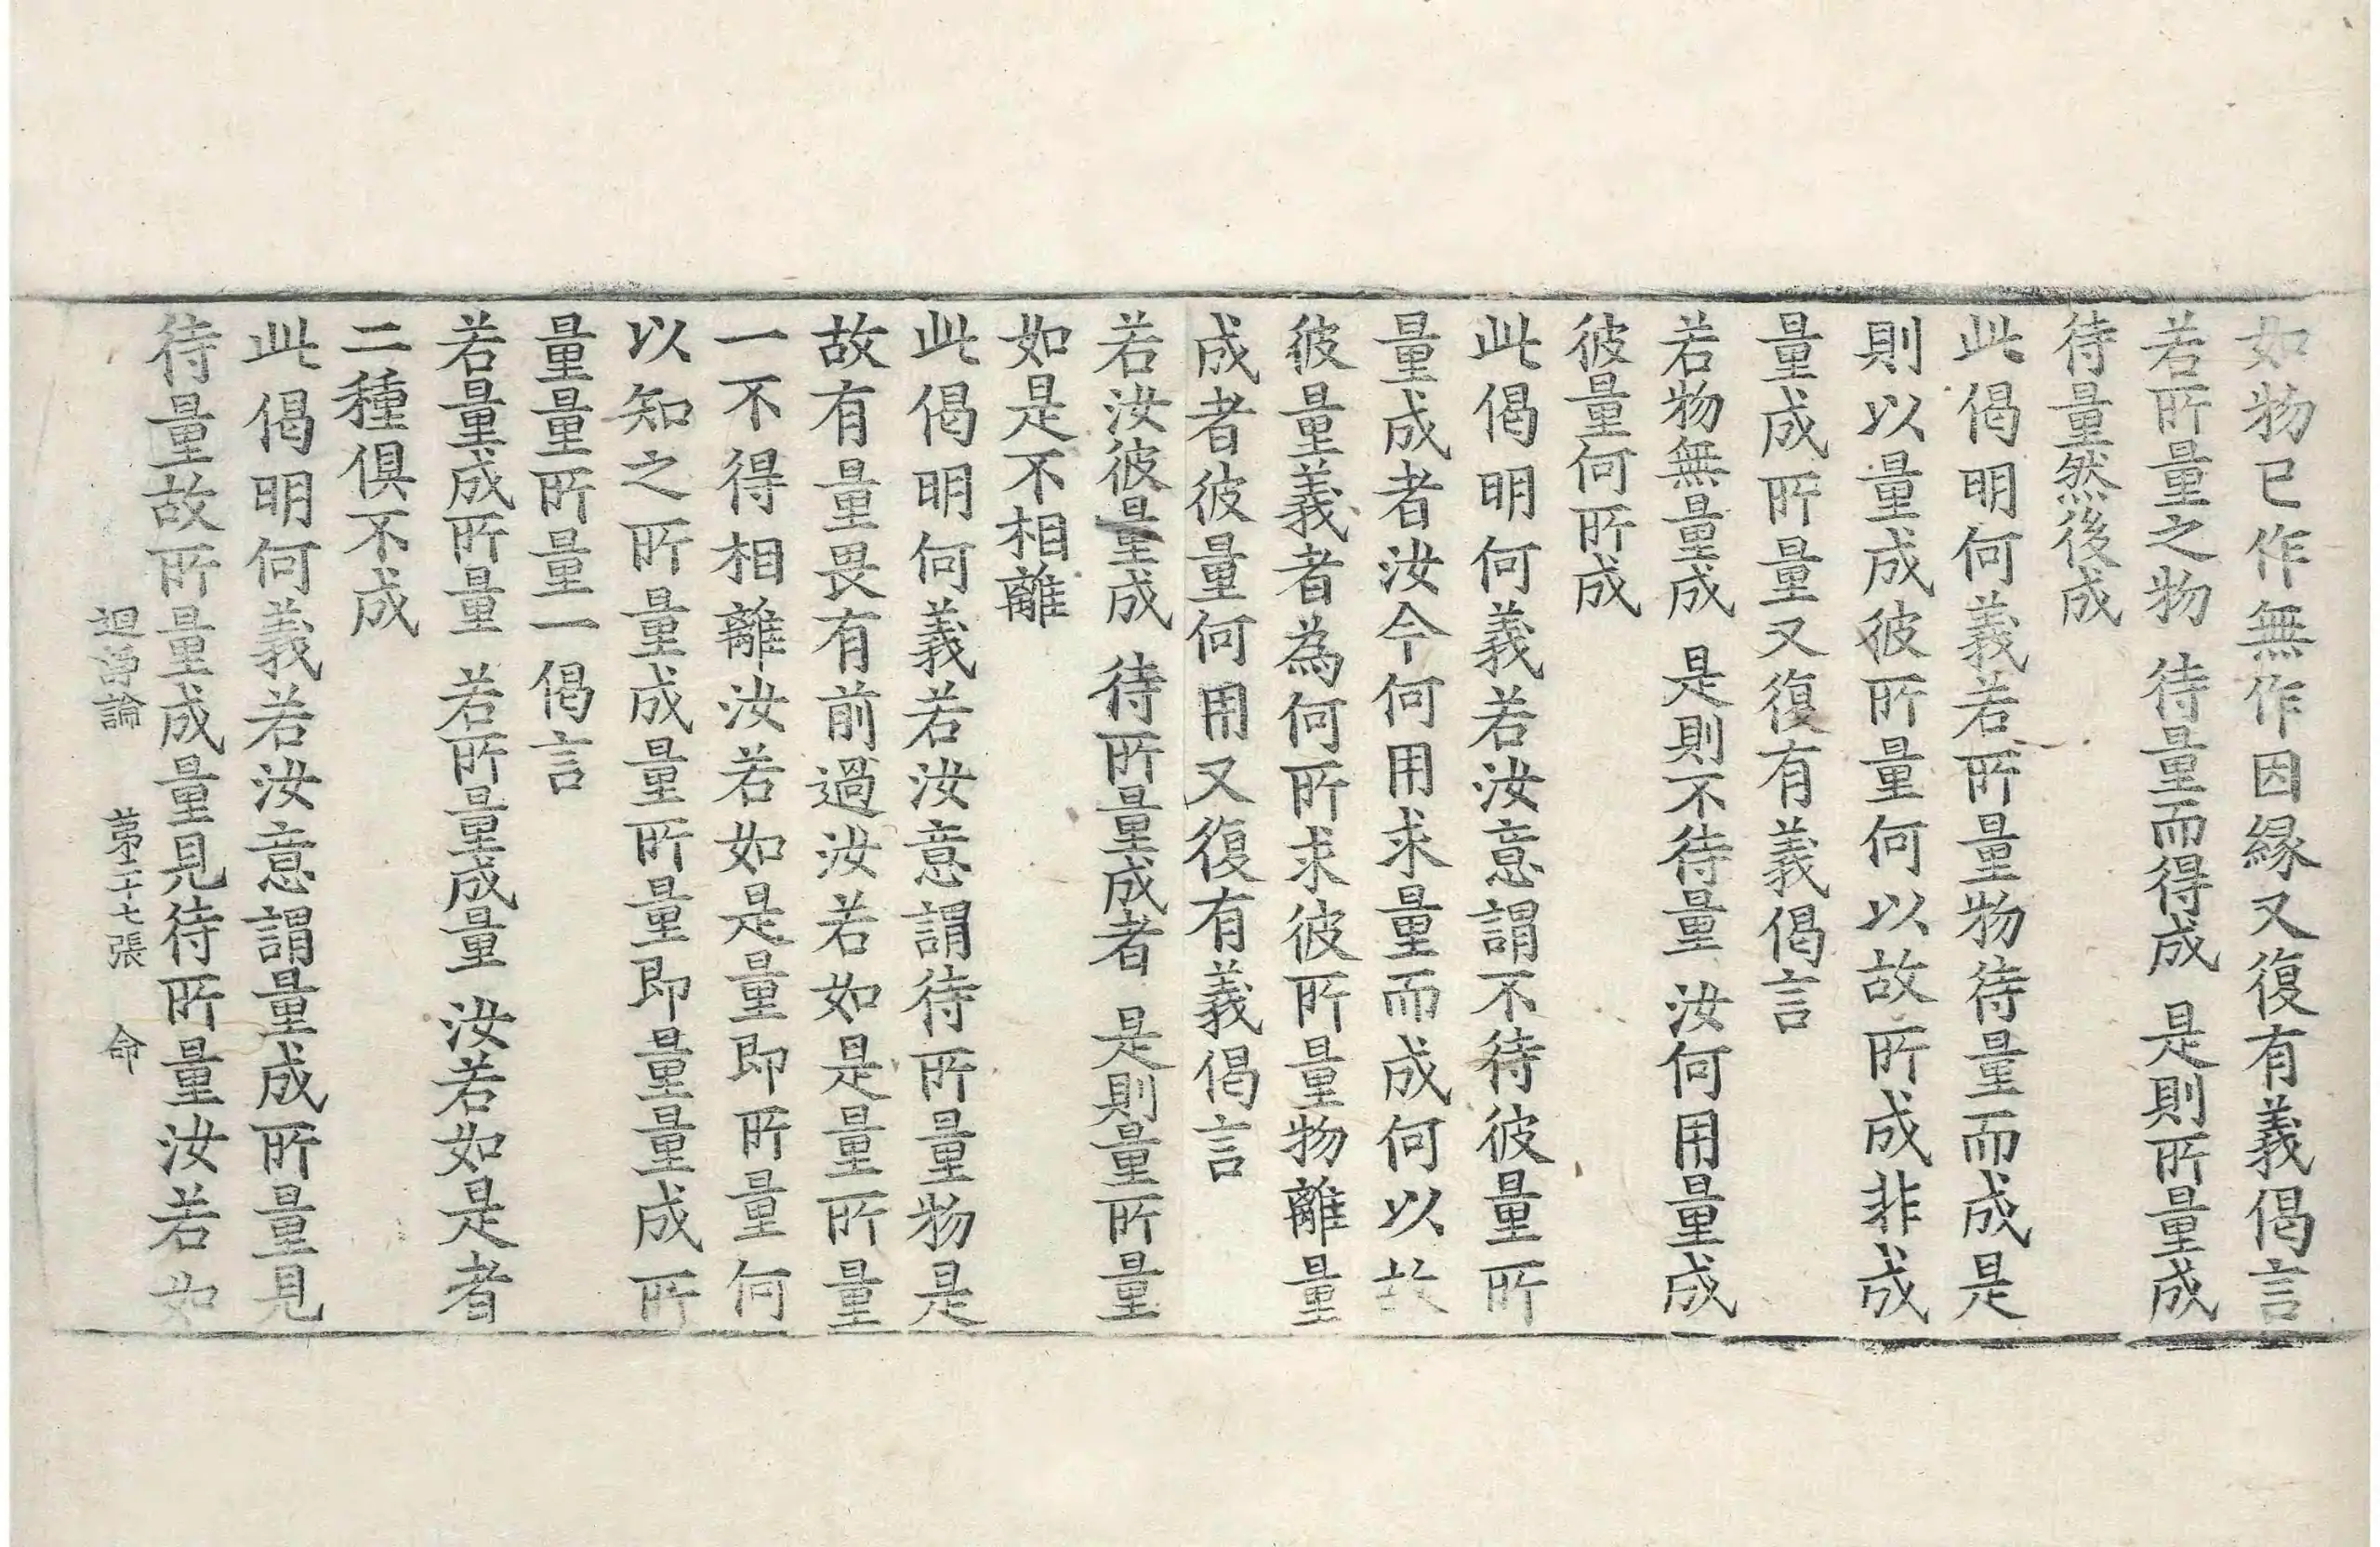 如物已作無作因緣又復有義偈言
若所量之物 待量而得成 是則所量成
待量然後成
此偈明何義若所量物待量而成是
則以量成彼所量何以故所成非成
量成所量又復有義偈言
若物無量成 是則不待量 汝何用量成
彼量何所成
此偈明何義若汝意謂不待彼量所
量成者汝今何用求量而成何以故
彼量義者為何所求彼所量物離量
成者彼量何用又復有義偈言
若汝彼量成 待所量成者 是則量所量
如是不相離
此偈明何義若汝意謂待所量物是
故有量畏有前過汝若如是量所量
一不得相離汝若如是量即所量何
以知之所量成量所量即量量成所
量量所量一偈言
若量成所量 若所量成量 汝若如是者
二種俱不成
此偈明何義若汝意謂量成所量見
待量故所量成量見待所量汝若如
迴諍論 第二十七張 命